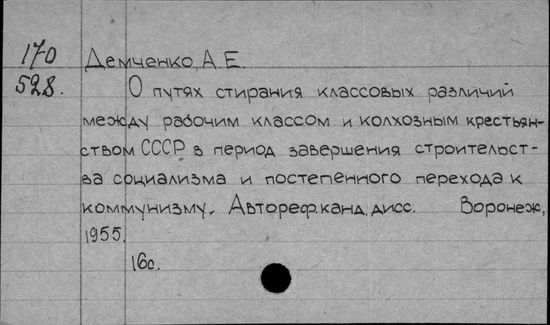 170 Демченко, А.Е.
528. О путях стирания классовых различий
между рабочим классом и колхозным крестьян-
ством СССР в период завершения строительст-
ва социализма и постепенного перехода к
коммунизму. Автореф. канд. дисс. Воронеж,
1955.
16с.